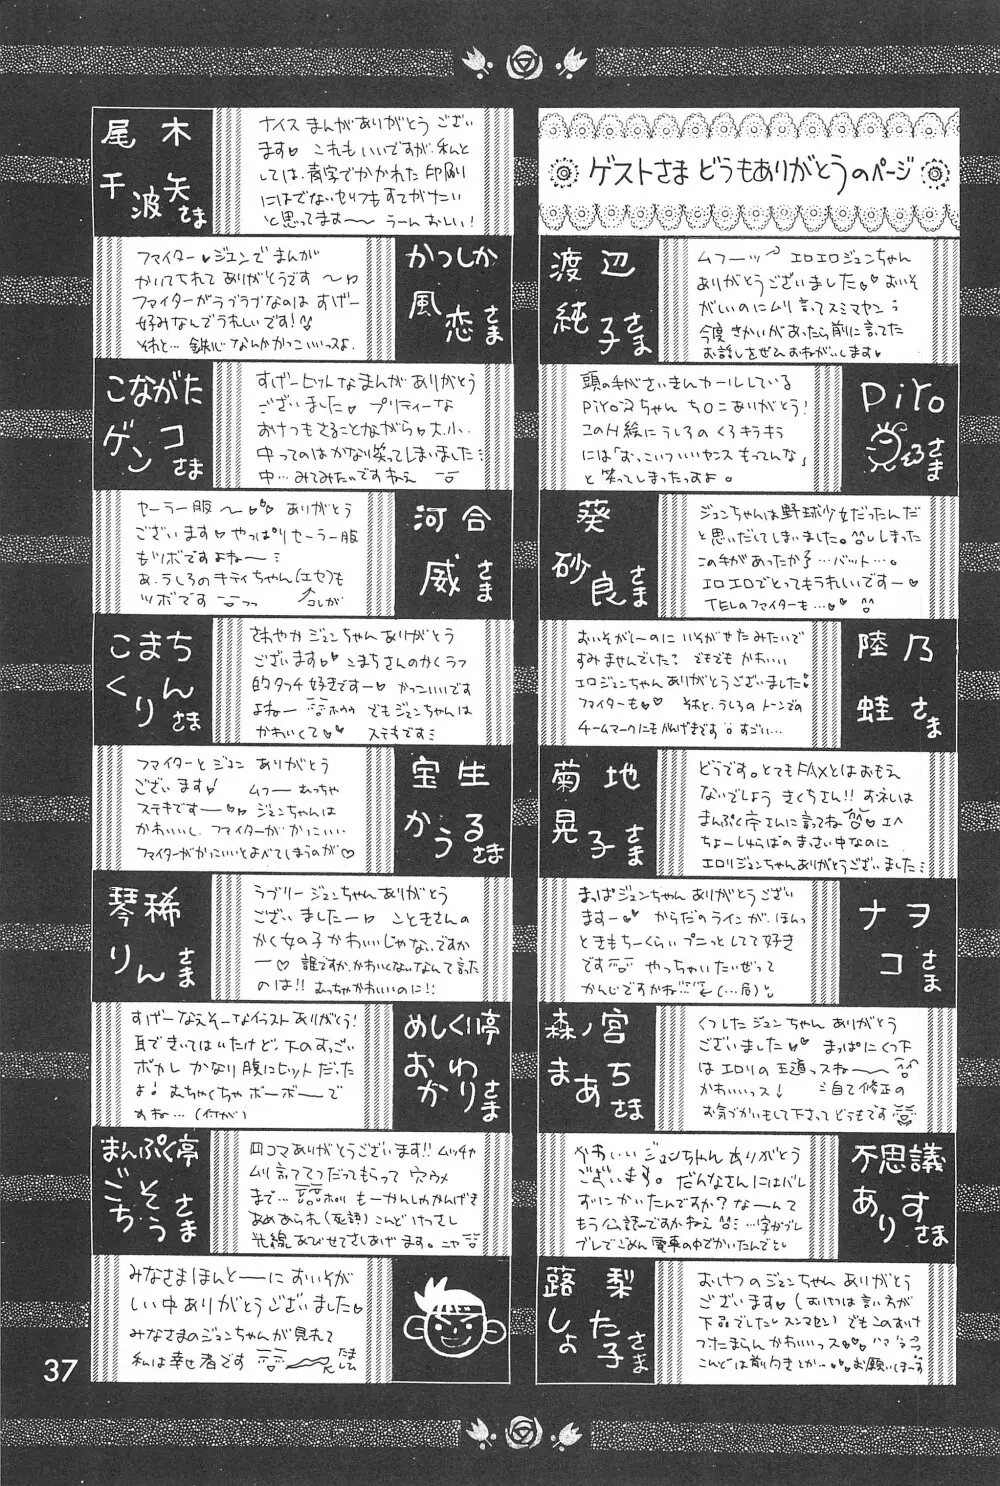 ゲストさま どうもありがとうのページ
渡辺
純子さま
ムフーッ エロエロジュンちゃん
ありがとうございました おいそ
がしいのにムリ言ってスミマセン
今度きかいがあったら前に言ってた
お話しをぜひおねがいします
Piroさま
頭の毛がさいまんカールしている
ありがとう!
このH絵にうしろのくろキラキラ
には「む、こいついいセンス もってんな」
と笑ってしまったっすよ。
葵
砂良さま
ジュンちゃんは野球少女だったんだ
と思いだしてしまいました。しまった
この手があったか…バット…。
エロエロでとってもうれしいですー
TELのファイターも…
陸乃
蛙さま
おいそがしーのに いそがせたみたいで
すみませんでした? でもでも かわいい
エロジュンちゃんありがとうございました
ファイターも それと、うしろのトーンでの
チームマークにもかんげきです すごい…
菊地
晃子さま
どうです。とてもFAXとはおもえ
ないでしょう きくちさん!! すえしは
まんぷく亭さんに言ってね
ちょーしゅらばのまっさい中なのに
エロリジュンちゃんありがとうございました
ナヲ
コさま
まっぱジュンちゃん ありがとうござい
ますー からだのラインが、ほんっ
ときもちーくらい プニっとしてて好き
です やっちゃいたいぜって
かんじですかね (…局)
森ノ宮
まあちさま
くつしたジュンちゃん ありがとう
ございました まっぱにくつ下
は エロリの王道っスねー
かわいいっス! 自主修正の
お気づかいもして下さってどうもです
不思議
ありすさま
かわいいジュンちゃんありがとう
ございます。だんなさんにはバレ
ずにかいたんですか?なーんて
もう伝説ですかねえ …字がブレ
ブレでごめん 電車の中でかいたんでと
蕗梨
しょた子さま
おけつのジュンちゃん ありがとう
ございます (おけつは言い方が
下品でした スンマセン) でもこのおけ
つたまらん かわいいっス
こんどは前向きとか… お願いしまーす
尾木
千波矢さま
ナイスまんがありがとうござい
ます これもいいですが、私と
しては、青字でかかれた印刷
にはでないセリフもすてがたい
と思ってます〜 うーんおしい!
かつしか
風恋さま
ファイター♥ジュンでまんが
かいてくれてありがとうです〜
ファイターがラブラブなのは すげー
好みなんでうれしいです!
それと… 鉄じなんかかっこいいっスよ
こながた
ゲンコさま
すげーヒットなまんがありがとう
ございました プリティーな
おけつもさることながら、大小
中ってのはかなり笑ってしまいました
中…みてみたいですねえ
河合
威さま
セーラー服〜 ありがとう
ございます やっぱりセーラー服
もツボですよね〜
あ、うしろのキティちゃん(エセ)も
ツボです コレが
こまち
くりんさま
さわやかジュンちゃん ありがとう
ございます こまちさんのかくラフ
的タッチ好きですー かっこいいです
よねー でもジュンちゃんは
かわいくて ステキです
宝生
かうるさま
ファイターと ジュン ありがとう
ございます! ムフー むっちゃ
ステキですー ジュンちゃんは
かわいいし、ファイターがかっこいい
ファイターがかっこいいとよべてしまうのが
琴稀
りんさま
ラブリージュンちゃん ありがとう
ございましたー ことききんの
かく女の子 かわいいじゃない、ですか
ー 誰ですか、かわいくないなんて言った
のは!! むっちゃかわいいのに!!
めしくい亭
おかわりさま
すげーなえそーなイラストありがとう!
耳できいてはいたけど、下のすっごい
ボカし かなり腹にヒットだった
よ! むちゃくちゃボーボーで
すね… (何が)
まんぷく亭
ごちそうさま
四コマありがとうございます!! ムッチャ
ムリ言ってて だってもらって 穴ウメ
まで… もーかんしゃかんげき
あめあられ(死語) こんど けっさし
光線 あびせてさしあげます。ニャ
みなさまほんとーに おいそが
しい中ありがとうございました
みなさまのジュンちゃんが見れて
私は幸せ者です
37